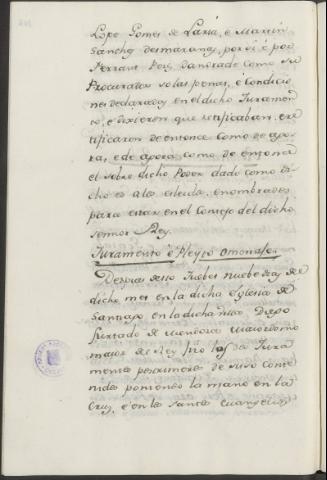 Lope Gomes de Laria, e Martin
Sanchez desmaranas, por si è por
Ferrant Peis, Dandrade como su
Procurador so las penas, è condicio
nes declaradas en el dicho Juramen
to, e dixieron que retificaban, e re
tificaron de entonce como de ago
ra, e de agora, como de entonce
el sobre dicho Poder dado como di
cho es a los esleidos, e nombrados
para estar en el Consejo del dicho
Señor Rey.
Juramento è Pleyto Omenaje
Despues desto Jueves nuebe dias del
dicho mes en la dicha Iglesia de
Santiago en la dicha Villa, Diego
Furtado de Mendoza
maior de Rey fizo los Jura
mentos de suso conte
nidos poniendo la mano en la
Cruz, è en los Santos Euangelios